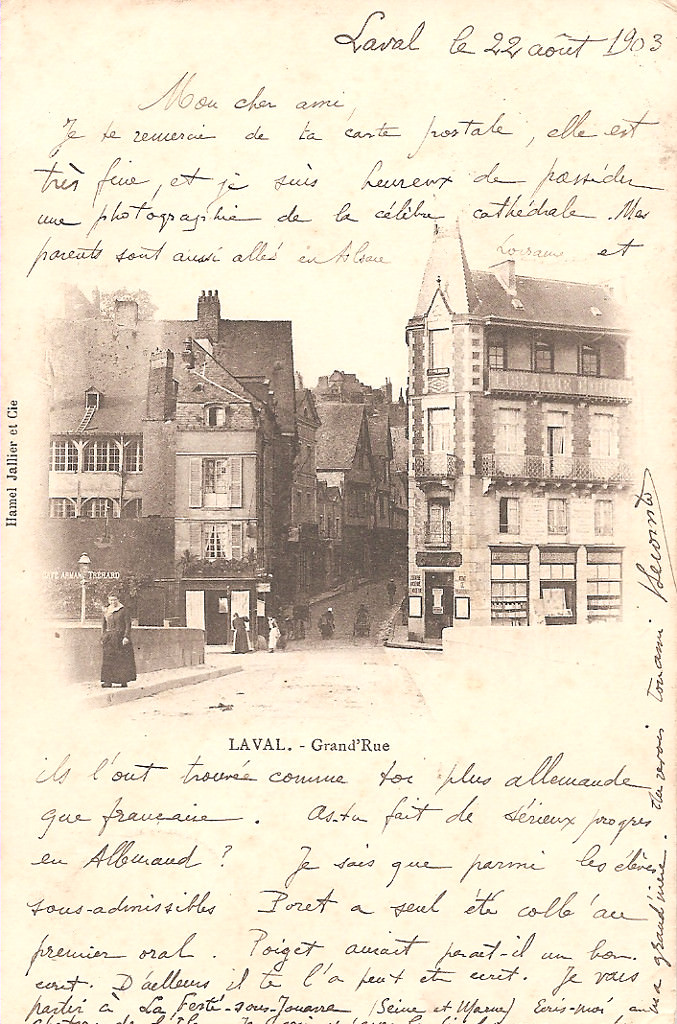 Laval le 22 août 1903
Mon cher ami,
Je te remercie de ta carte postale, elle est
très fine, et je suis heureux de posséder
une photographie de la célèbre cathédrale. Mes
parents sont aussi allés en Alsace Lorraine et
Hamel Jallier et Cie
CAFÉ ARMAND THÉRARD
LAVAL. - Grand'Rue
ils l'ont trouvée comme toi plus allemande
que française. As-tu fait de sérieux progrès
en Allemand ? Je sais que parmi les élèves
sous-admissibles Poret a seul été collé au
premier oral. Poiget aurait paraît-il un bon
écrit. D'ailleurs il te l'a peut être écrit. Je vais
partir à La Ferté-sous-Jouarre (Seine et Marne) Ecris-moi, au
ma grand'mère. Au revoir ton ami